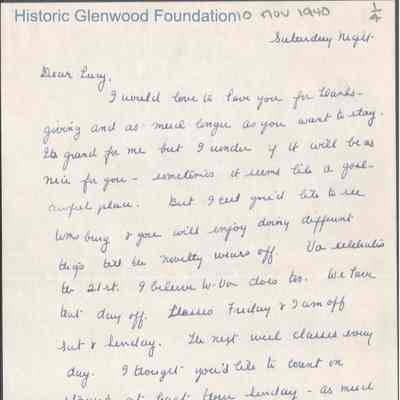 Historic Glenwood Foundation
10 Nov 1940
1/4
Saturday Night.
Dear Lucy,
I would love to have you for Thanks-
giving and as much longer as you want to stay.
Its grand for me but I wonder if it will be as
nice for you - sometimes it seems like a god-
awful place. But I bet you'd like to see
Wmsburg & you will enjoy doing different
things till the novelty wears off. Va celebrates
the 21st. I believe W. Va does too. We have
that day off. Classes Friday & I am off
Sat & Sunday. The next week classes every
day. I thought you'd like to count on
staying at least thru Sunday - as much